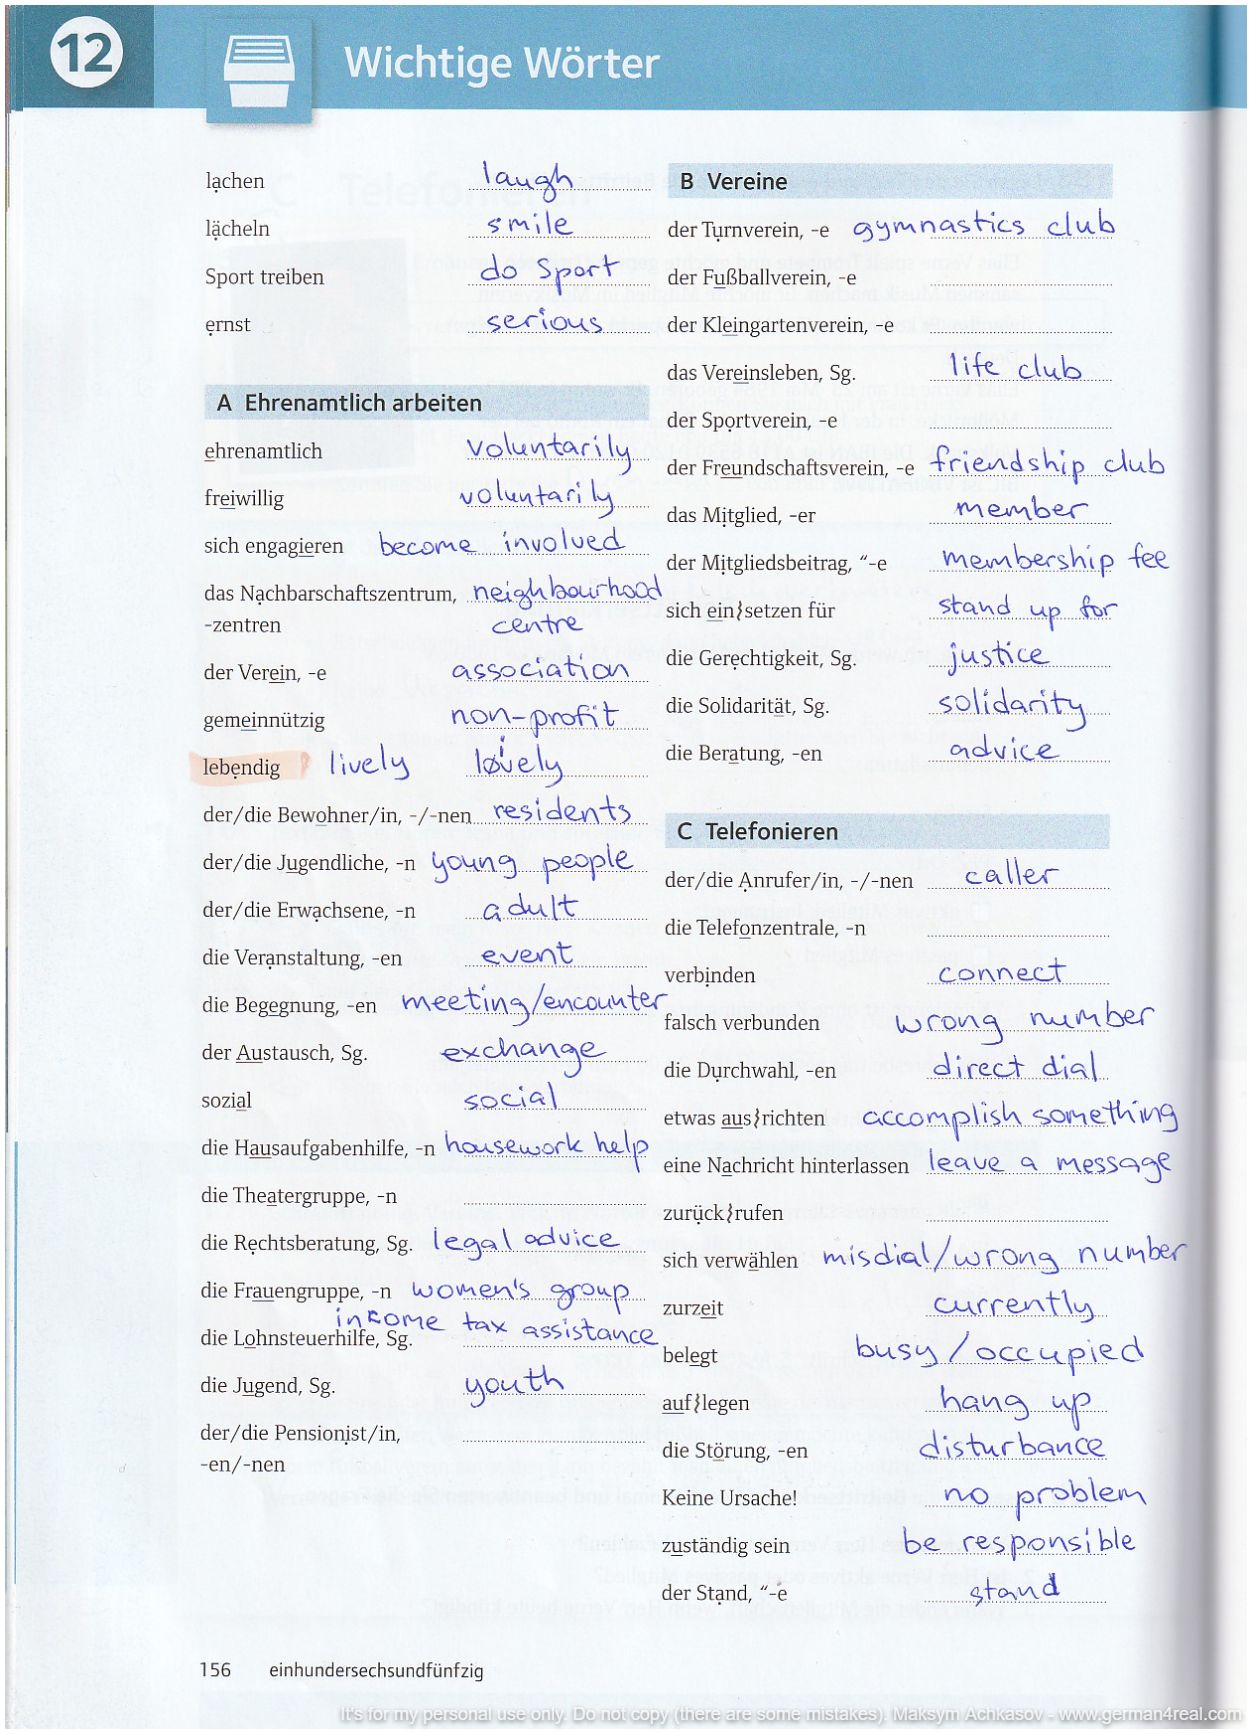 12
Wichtige Wörter
lachen laugh
lächeln smile
Sport treiben do sport
ernst serious
A Ehrenamtlich arbeiten
ehrenamtlich voluntarily
freiwillig voluntarily
sich engagieren become involved
das Nachbarschaftszentrum, neighbourhood
-zentren centre
der Verein, -e association
gemeinnützig non-profit
lebendig lively lively
der/die Bewohner/in, -/-nen residents
der/die Jugendliche, -n young people
der/die Erwachsene, -n adult
die Veranstaltung, -en event
die Begegnung, -en meeting/encounter
der Austausch, Sg. exchange
sozial social
die Hausaufgabenhilfe, -n housework help
die Theatergruppe, -n
die Rechtsberatung, Sg. legal advice
die Frauengruppe, -n women's group
die Lohnsteuerhilfe, Sg. income tax assistance
die Jugend, Sg. youth
der/die Pensionist/in,
-en/-nen
B Vereine
der Turnverein, -e gymnastics club
der Fußballverein, -e
der Kleingartenverein, -e
das Vereinsleben, Sg. life club
der Sportverein, -e
der Freundschaftsverein, -e friendship club
das Mitglied, -er member
der Mitgliedsbeitrag, “-e membership fee
sich ein}setzen für stand up for
die Gerechtigkeit, Sg. justice
die Solidarität, Sg. solidarity
die Beratung, -en advice
C Telefonieren
der/die Anrufer/in, -/-nen caller
die Telefonzentrale, -n
verbinden connect
falsch verbunden wrong number
die Durchwahl, -en direct dial
etwas aus}richten accomplish something
eine Nachricht hinterlassen leave a message
zurück}rufen
sich verwählen misdial/wrong number
zurzeit currently
belegt busy/occupied
auf}legen hang up
die Störung, -en disturbance
Keine Ursache! no problem
zuständig sein be responsible
der Stand, “-e stand
156 einhundersechsundfünfzig
It's for my personal use only. Do not copy (there are some mistakes). Maksym Achkasov - www.german4real.com